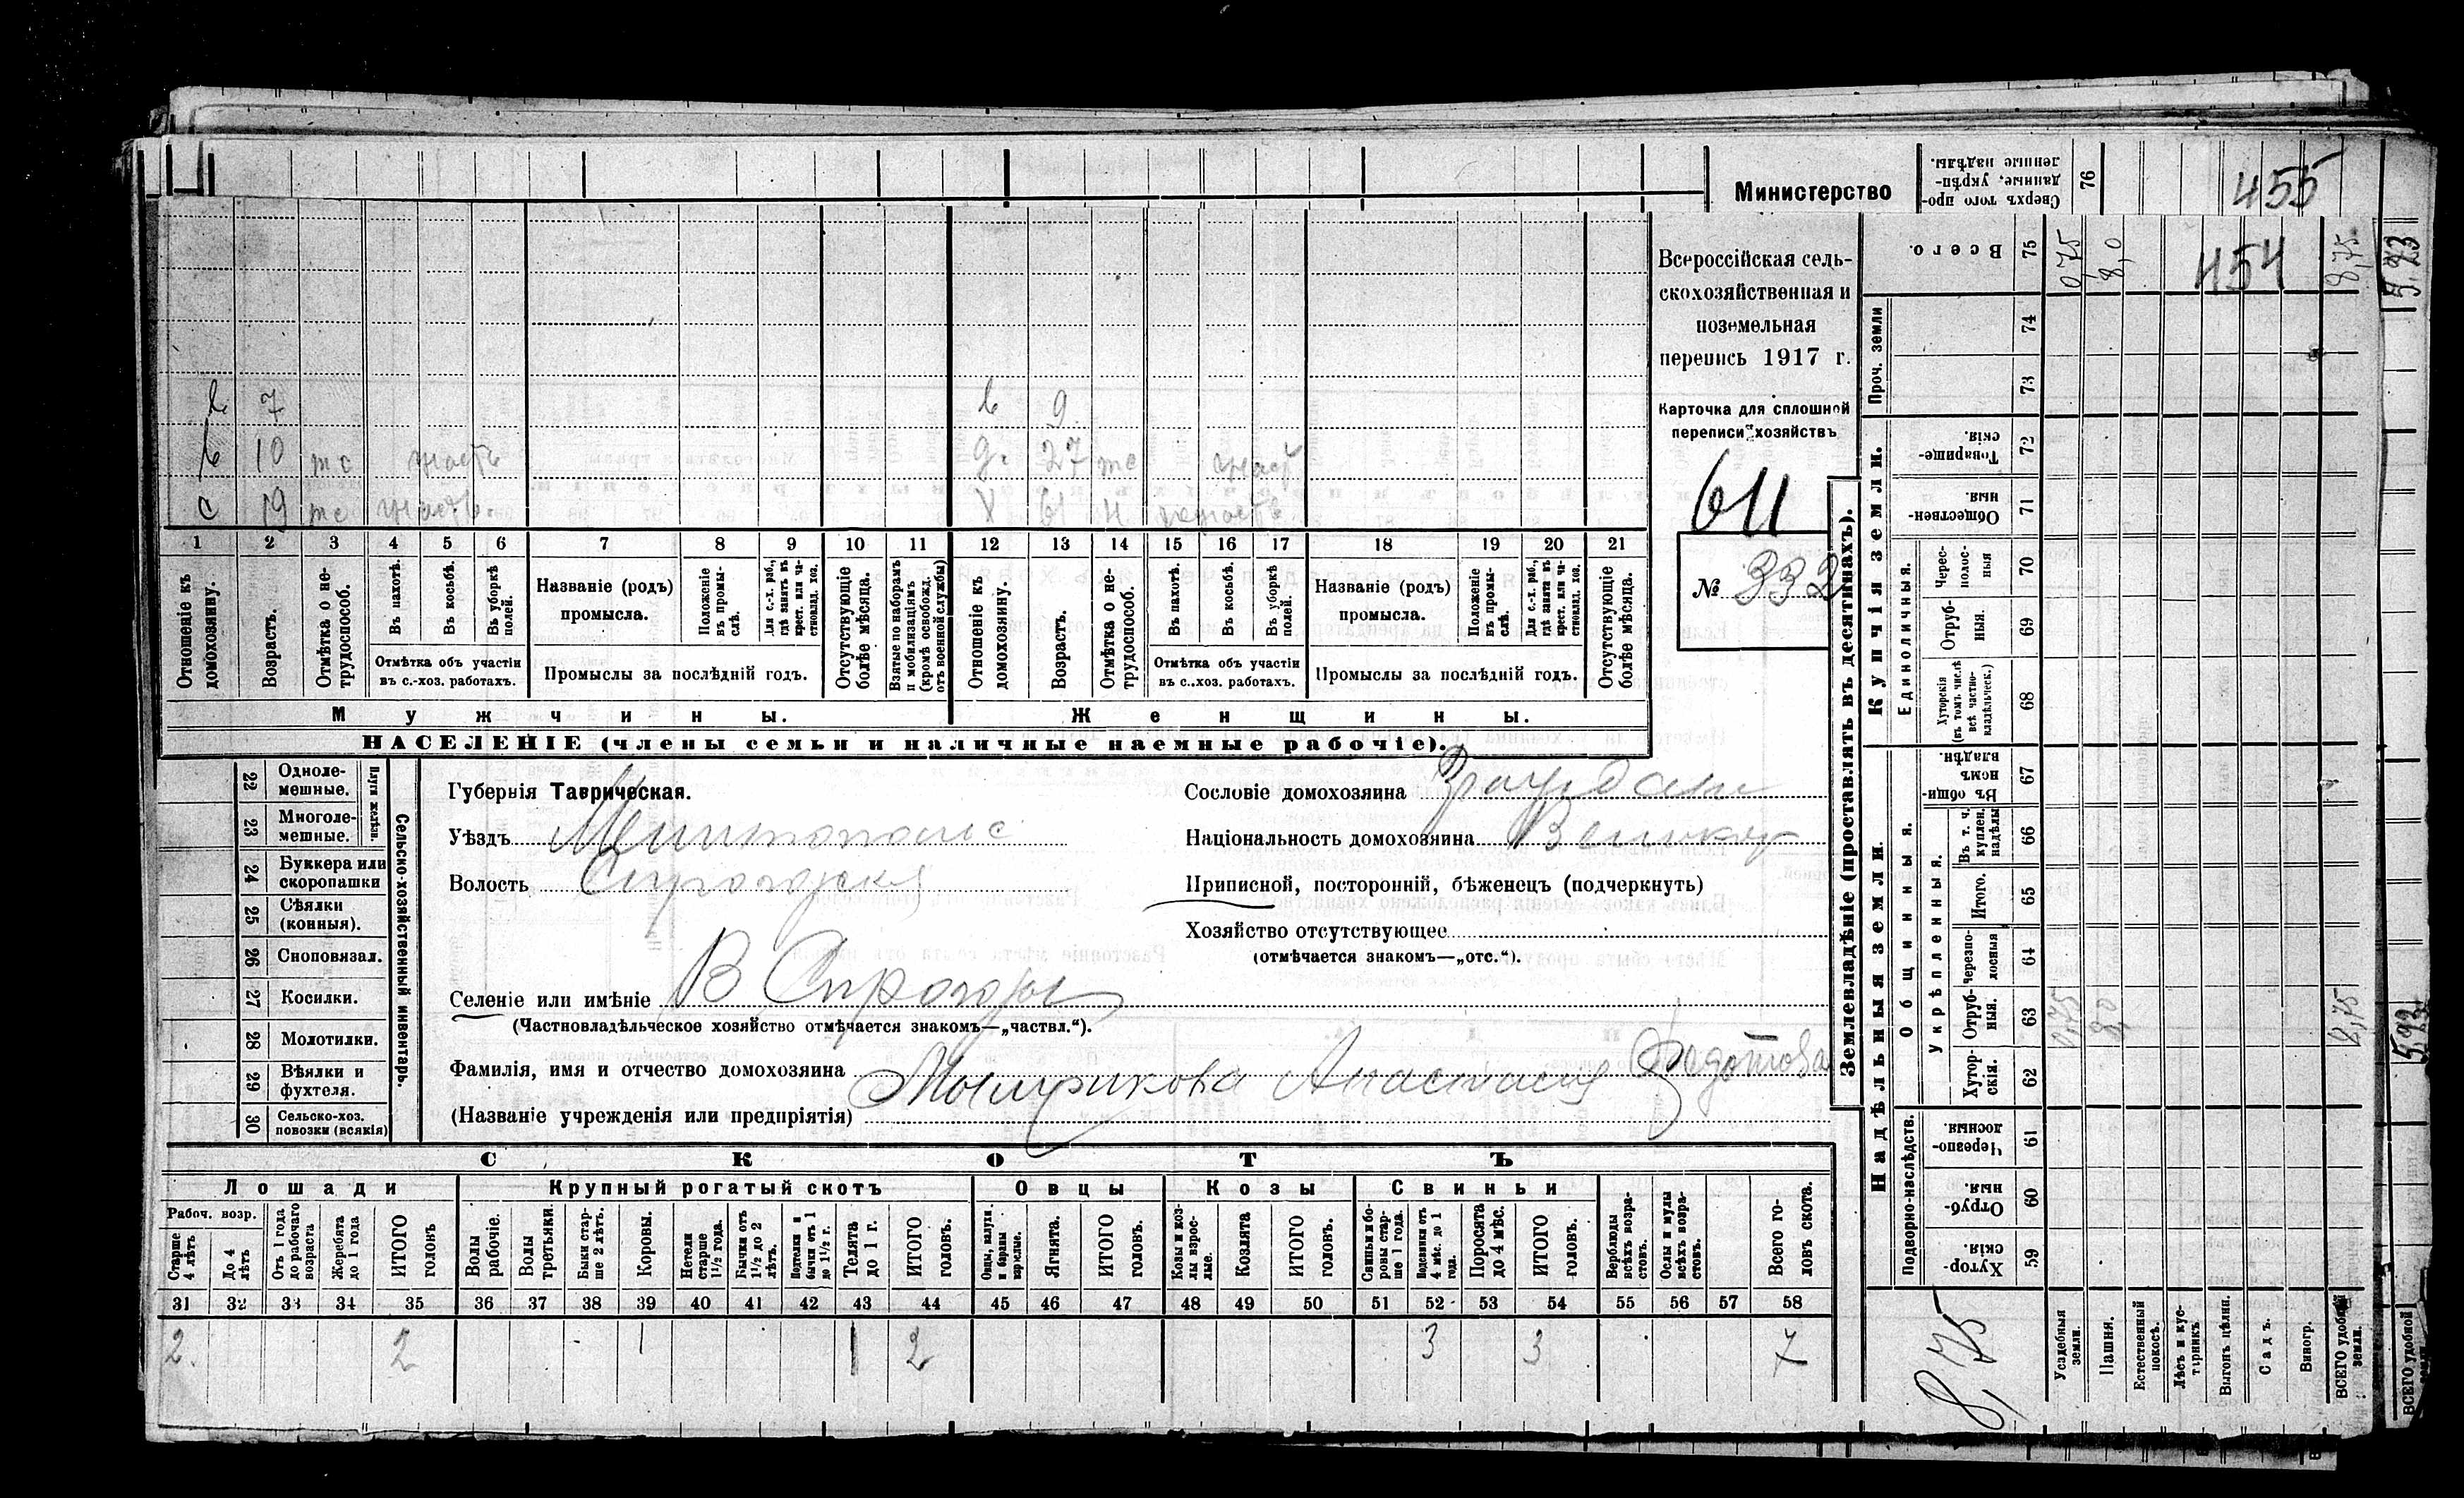 Министерство
Сверхъ того проданные, укрѣпленные надѣлы.
76
455
Всероссійская сельскохозяйственная и
поземельная
перепись 1917 г.
Карточка для сплошной
переписи хозяйствъ
611
№ 332
7
9
10
27
19
1 2 3 4 5 6 7 8 9 10 11 12 13 14 15 16 17 18 19 20 21
Отношеніе къ домохозяину.
Возрастъ.
Отмѣтка о нетрудоспособ.
Въ пахотѣ.
Въ косьбѣ.
Въ уборкѣ полей.
Отмѣтка объ участіи въ с.-хоз. работахъ.
Названіе (родъ) промысла.
Положеніе въ промыслѣ.
Для с.-х. раб., гдѣ занятъ въ крест. или частновлад. хоз.
Промыслы за послѣдній годъ.
Отсутствующіе болѣе мѣсяца.
Взятые по наборамъ и мобилизаціямъ (кромѣ освобожд. отъ военной службы)
Отношеніе къ домохозяину.
Возрастъ.
Отмѣтка о нетрудоспособ.
Въ пахотѣ.
Въ косьбѣ.
Въ уборкѣ полей.
Отмѣтка объ участіи въ с..хоз. работахъ.
Названіе (родъ) промысла.
Положеніе въ промыслѣ.
Для с.-х. раб., гдѣ занятъ въ крест. или частновлад. хоз.
Промыслы за послѣдній годъ.
Отсутствующіе болѣе мѣсяца.
Мужчины.
Женщины.
НАСЕЛЕНІЕ (члены семьи и наличные наемные рабочіе).
22 Однолемешные.
23 Многолемешные.
Плуги желѣзн.
24 Буккера или скоропашки
25 Сѣялки (конныя).
26 Сноповязал.
27 Косилки.
28 Молотилки.
29 Вѣялки и фухтеля.
30 Сельско-хоз. повозки (всякія)
Сельско-хозяйственный инвентарь.
Губернія Таврическая.
Уѣздъ Мелитопольс
Волость Сирогозская
Селеніе или имѣніе В Сирогозы
(Частновладѣльческое хозяйство отмѣчается знакомъ—„частвл.“).
Фамилія, имя и отчество домохозяина Анастасия Федотова
(Названіе учрежденія или предпріятія)
Сословіе домохозяина Граждан
Національность домохозяина Великор
Приписной, посторонній, бѣженецъ (подчеркнуть)
Хозяйство отсутствующее
(отмѣчается знакомъ—„отс.“).
СКОТЪ
Лошади
Крупный рогатый скотъ
Овцы
Козы
Свиньи
Рабоч. возр.
Старше 4 лѣтъ
До 4 лѣтъ
Отъ 1 года до рабочаго возраста
Жеребята до 1 года
ИТОГО головъ
Волы рабочіе.
Волы третьяки.
Быки старше 2 лѣтъ.
Коровы.
Нетели старше 1½ года.
Бычки отъ 1½ до 2 лѣтъ.
Подтелки и бычки отъ 1 до 1½ г.
Телята до 1 г.
ИТОГО головъ.
Овцы, валухи и бараны взрослые.
Ягнята.
ИТОГО головъ.
Козы и козлы взрослые.
Козлята
ИТОГО головъ.
Свиньи и боровы старше 1 года.
Подсвинки отъ 4 мѣс. до 1 года.
Поросята до 4 мѣс.
ИТОГО головъ.
Верблюды всѣхъ возрастовъ.
Ослы и мулы всѣхъ возрастовъ.
Всего головъ скота.
31 32 33 34 35 36 37 38 39 40 41 42 43 44 45 46 47 48 49 50 51 52 53 54 55 56 57 58
2 2 1 1 2 3 3 7
Землевладѣніе (проставлять въ десятинахъ).
Надѣльныя земли.
Купчія земли.
Проч. земли
Всего. 75
74
73
Товарищескія. 72
Общественныя. 71
Единоличныя.
Чересполосныя 70
Отрубныя. 69
Хуторскія (въ томъ числѣ всѣ частновладѣльческ.) 68
Общинныя.
Въ общинномъ владѣн. 67
Укрѣпленныя.
Въ т. ч. куплен. надѣлы 66
Итого. 65
Черезполосныя 64
Отрубныя. 63
Хуторскія. 62
Подворно-наслѣдств.
Черезполосныя. 61
Отрубныя. 60
Хуторскія. 59
0,75
8,0
454
8,75
5,93
0,75
8,0
8,75
5,93
8,75
Усадебныя земли.
Пашня.
Естественный покосъ.
Лѣсъ и кустарникъ
Выгонъ цѣлин.
Садъ.
Виногр.
ВСЕГО удобной земли.
ВСЕГО удобной